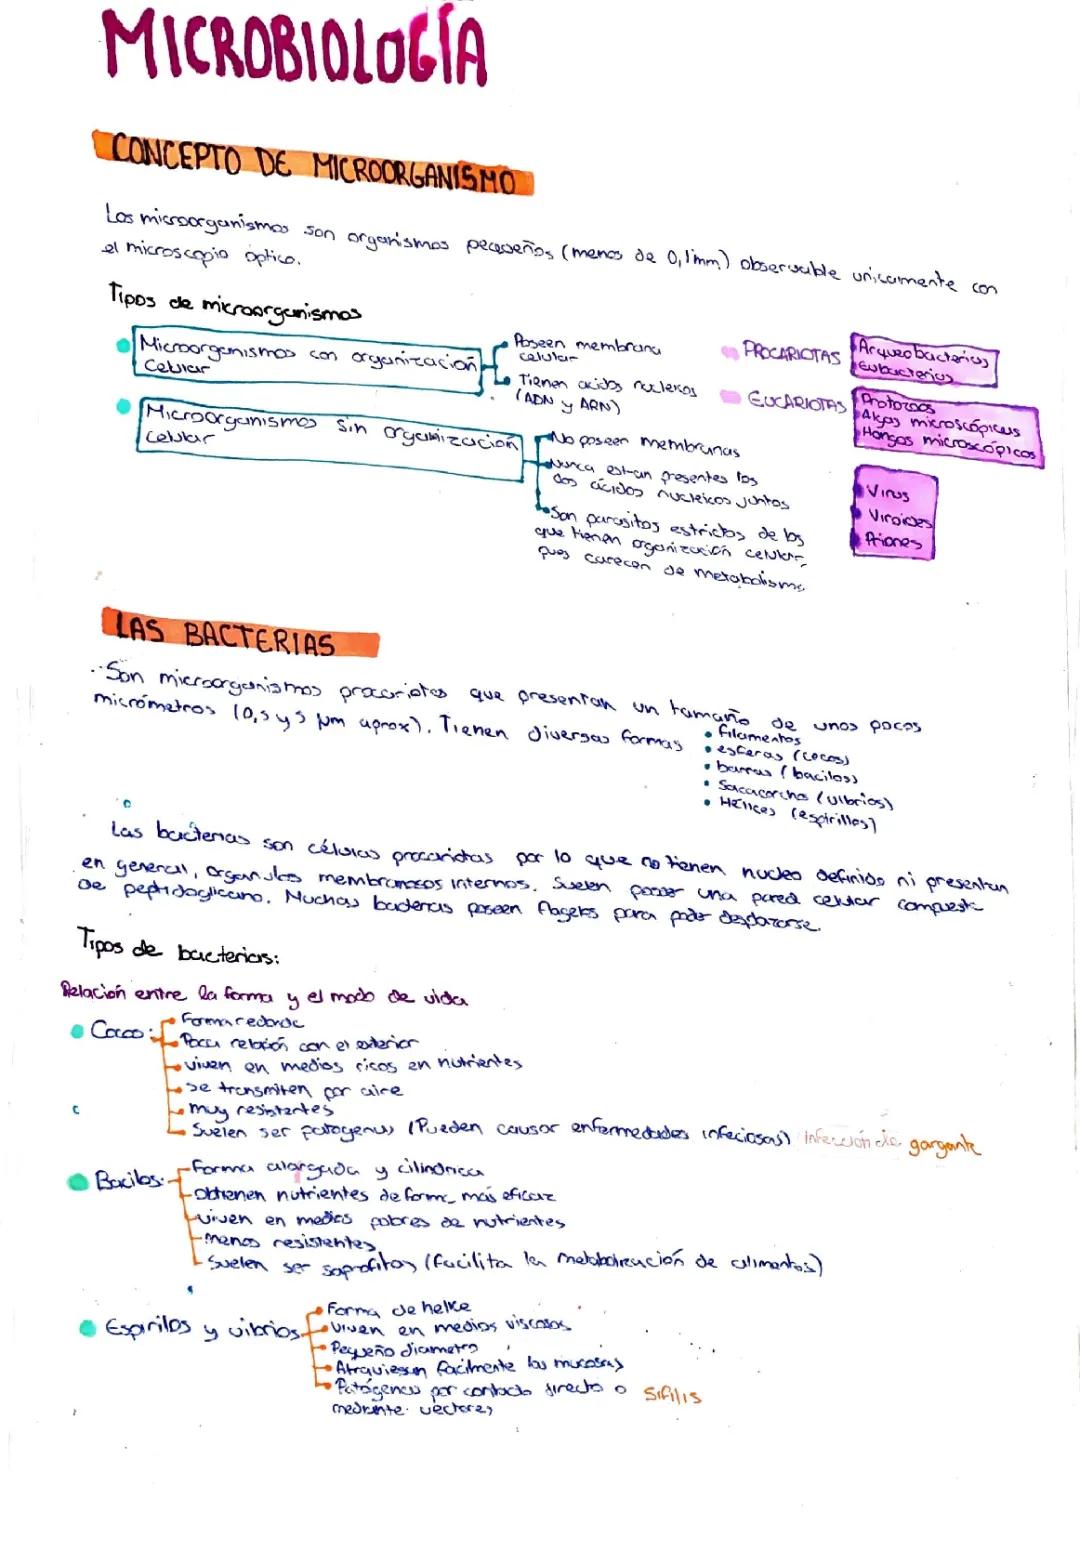 MICROBIOLOGÍA
CONCEPTO DE MICROORGANISMO
Los microorganismos son organismos pequeños (menos de 0,1mm) observable unicamente con
el microscopio optico.
Tipos de microorganismos
Microorganismos con organización
Celular
Poseen membrana
celular
Tienen acidos nucleicos
(ADN y ARN)
PROCARIOTAS
Arqueobacterias
Eubacterias
EUCARIOTAS
Protozoos
Algas microscópicas
Hongos microscópicos
Microorganismos sin organización
Celular
No poseen membranas
Nunca estan presentes los
dos ácidos nucleicos juntos
Son parasitos estrictos de los
que tienen organización celular,
pues carecen de metabolismo
Virus
Viroides
Priones
LAS BACTERIAS
Son microorganismos procariotas que presentan un tamaño de unos pocos
micrómetros (0,5 y 5 µm aprox). Tienen diversas formas
• filamentos
• esferas (cocos)
• barras (bacilos)
• Sacacorchos (vibrios)
• Hélices (espirillos)
Las bacterias son células procariotas por lo que no tienen nucleo definido ni presentan
en general, organulos membranosos internos. Suelen poseer una pared celular compuesta
de peptidoglicano. Muchas bacterias poseen flagelos para poder desplazarse.
Tipos de bacterias:
Relación entre la forma y el modo de vida
Cocos:
Forma redonda
Poca relación con el exterior
viven en medios ricos en nutrientes
se transmiten por aire
muy resistentes
Suelen ser patogenos (Pueden causar enfermedades infeciosas) infección de garganta
Bacilos:
Forma alargada y cilindrica
obtienen nutrientes de forma más eficaz
viven en medios pobres de nutrientes
menos resistentes
Suelen ser saprofitos (facilita la metabolización de alimentos)
Espirilos y vibrios
Forma de helice
viven en medios viscosos
Pequeño diametro
Atraviesan facilmente las mucosas
Patógenos por contacto directo o
mediante vectores
Sifilis